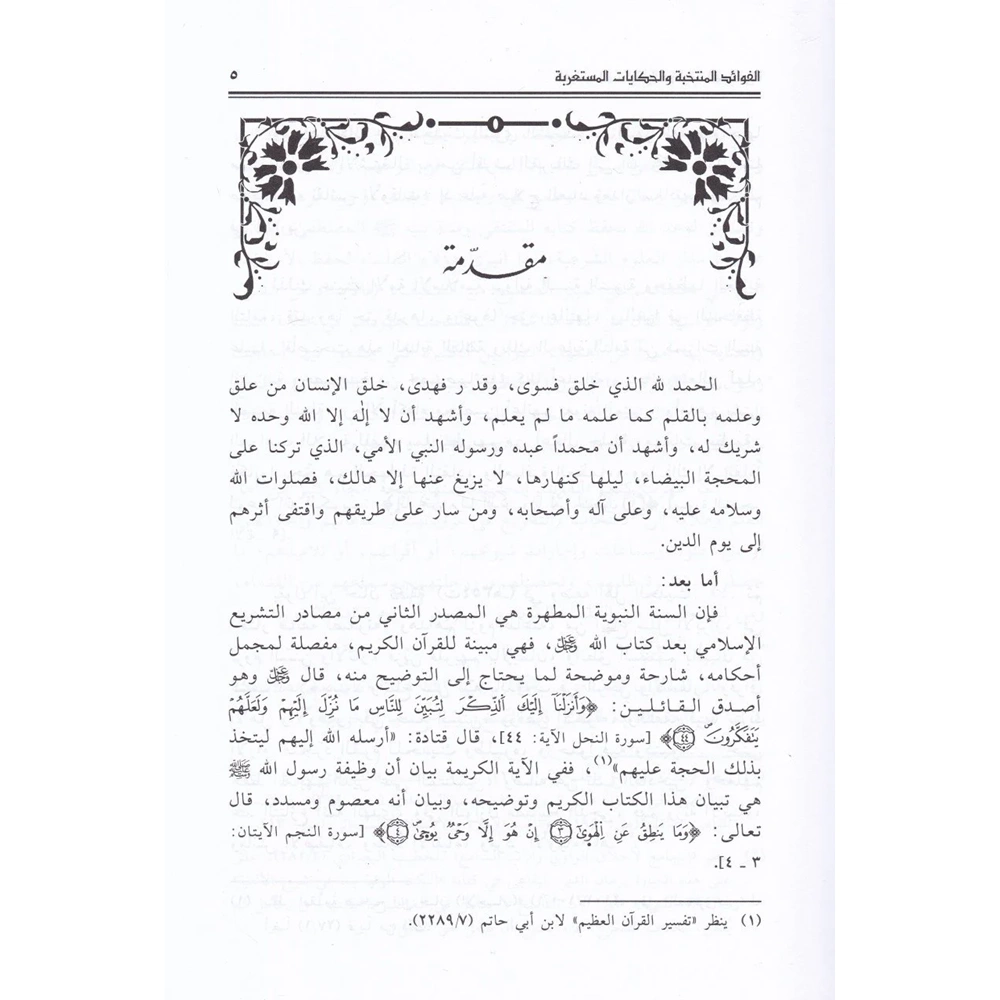 الفوائد المنتخبة والحكايات المستغربة ٥
مقدّمة
الحمد لله الذي خلق فسوى، وقدر فهدى، خلق الإنسان من علق
وعلمه بالقلم كما علمه ما لم يعلم، وأشهد أن لا إلٰه إلا الله وحده لا
شريك له، وأشهد أن محمداً عبده ورسوله النبي الأمي، الذي تركنا على
المحجة البيضاء، ليلها كنهارها، لا يزيغ عنها إلا هالك، فصلوات الله
وسلامه عليه، وعلى آله وأصحابه، ومن سار على طريقهم واقتفى أثرهم
إلى يوم الدين.
أما بعد:
فإن السنة النبوية المطهرة هي المصدر الثاني من مصادر التشريع
الإسلامي بعد كتاب الله ﷿، فهي مبينة للقرآن الكريم، مفصلة لمجمل
أحكامه، شارحة وموضحة لما يحتاج إلى التوضيح منه، قال ﷿ وهو
أصدق القائلين: ﴿وَأَنزَلْنَآ إِلَيْكَ ٱلذِّكْرَ لِتُبَيِّنَ لِلنَّاسِ مَا نُزِّلَ إِلَيْهِمْ وَلَعَلَّهُمْ
يَتَفَكَّرُونَ ۝٤٤﴾ [سورة النحل الآية: ٤٤]، قال قتادة: «أرسله الله إليهم ليتخذ
بذلك الحجة عليهم»(١)، ففي الآية الكريمة بيان أن وظيفة رسول الله ﷺ
هي تبيان هذا الكتاب الكريم وتوضيحه، وبيان أنه معصوم ومسدد، قال
تعالى: ﴿وَمَا يَنطِقُ عَنِ ٱلْهَوَىٰٓ ۝٣ إِنْ هُوَ إِلَّا وَحْىٌ يُوحَىٰ ۝٤﴾ [سورة النجم الآيتان:
٣ ـ ٤].
(١) ينظر «تفسير القرآن العظيم» لابن أبي حاتم (٢٢٨٩/٧).